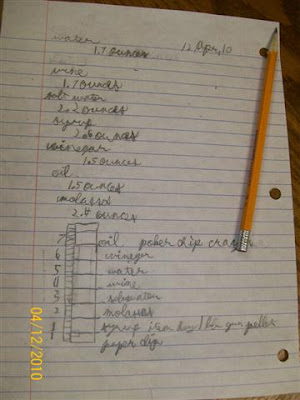 water
1.7 ounces 12 Apr, 10
wine
1.7 ounces
salt water
2.2 ounces
syrup
2.6 ounces
vinegar
1.5 ounces
oil
1.5 ounces
molasses
2.4 ounces
7 oil poker chip
6 vinegar
5 water
4 wine
3 saltwater
2 molasses
1 syrup item
paper clip
04/12/2010